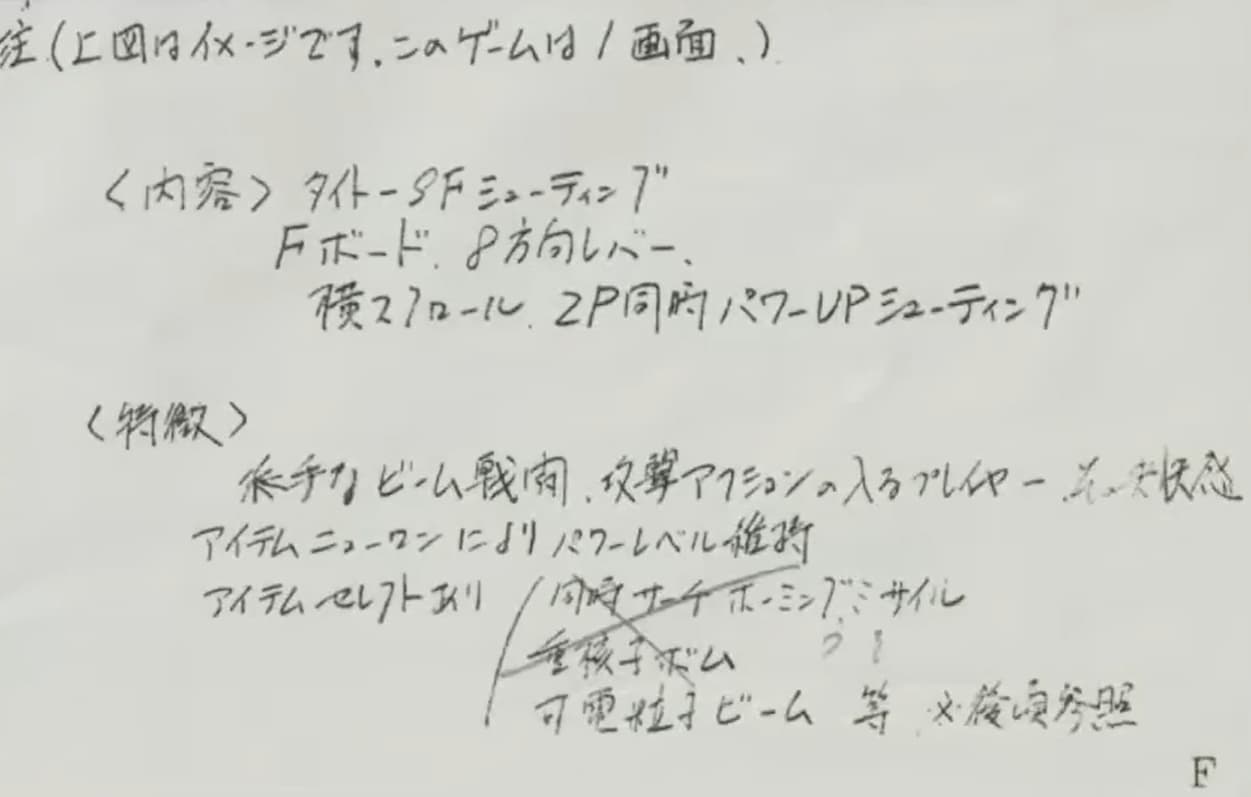 注(上図はイメージです.このゲームは1画面、)
〈内容〉 タイトーSFシューティング
Fボード、8方向レバー、
横スクロール、2P同時パワーUPシューティング
〈特徴〉
派手なビーム戦闘、攻撃アクションの入るプレイヤー
アイテムニューワンによりパワーレベル維持
アイテムセレクトあり 同時サーチホーミングミサイル
重核子ボム
可電粒子ビーム 等 ※後頁参照
F